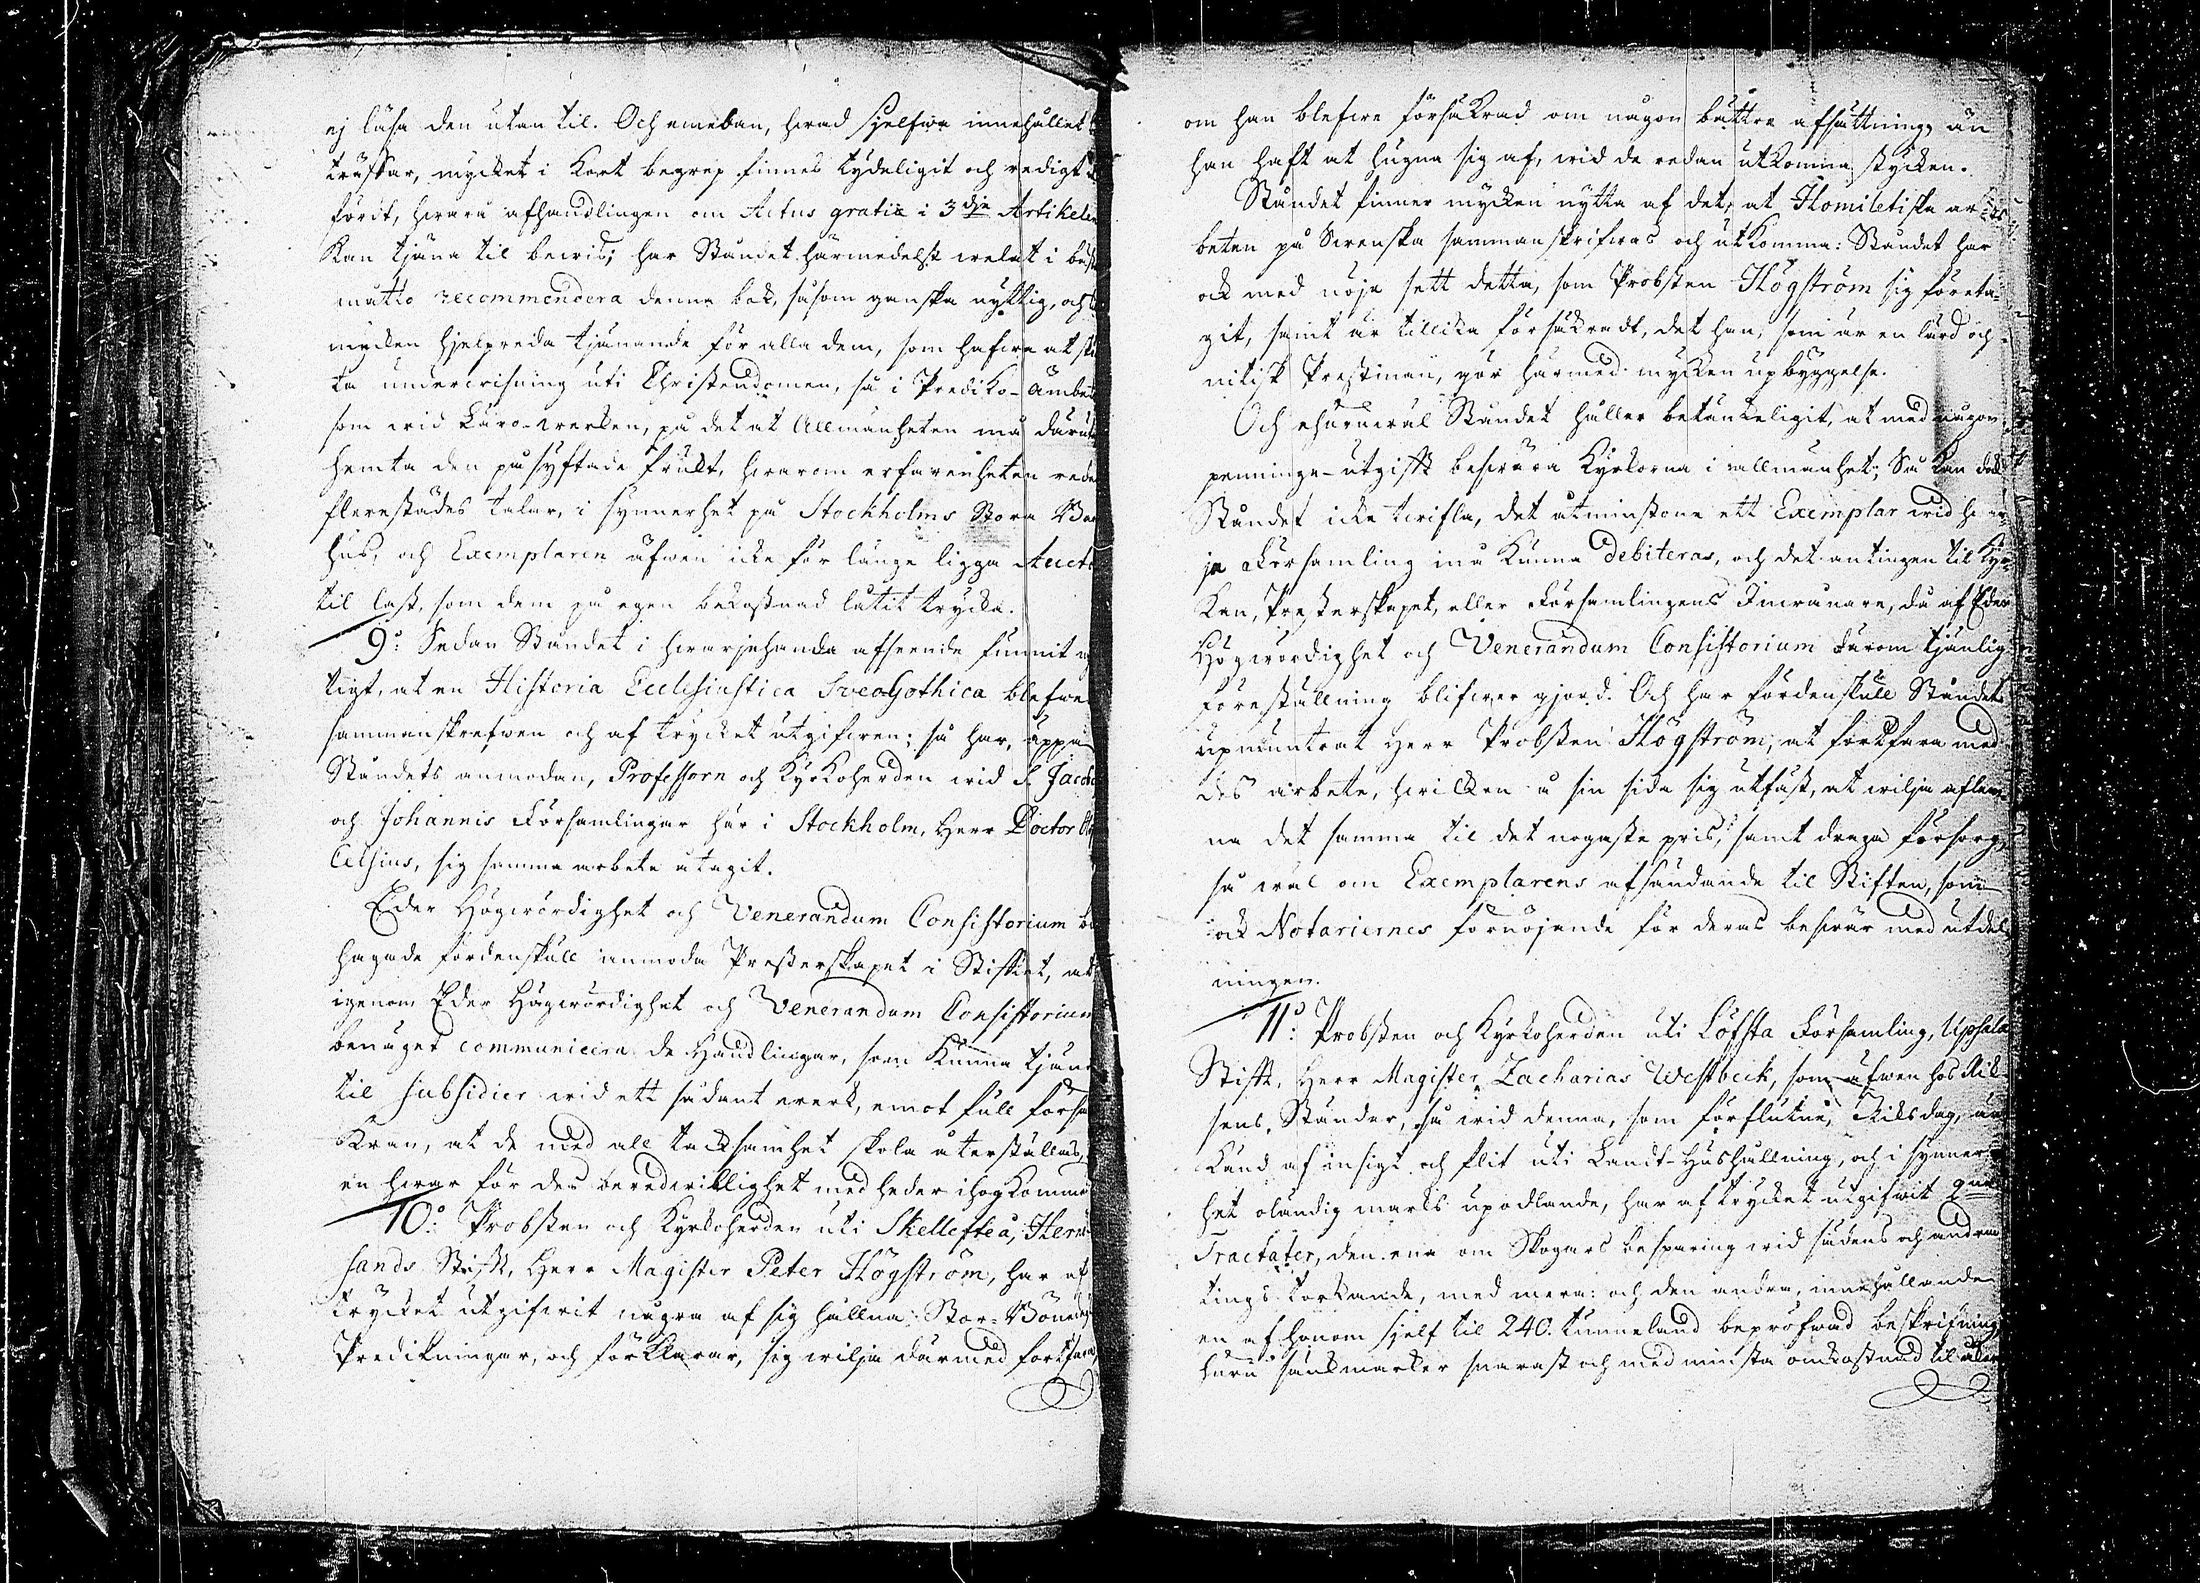 ej läsa den utan til. Och emedan, hwad sjelfwa innehållet
träffar, mycket i kort begrep finnes tydeligit och redigt
fördt, hwaru afhandlingen om Actus gratiæ i 3dje Artikelen
kan tjäna til bewis; har Ståndet härmedelst welat i bästa
matto recommendera denna bok, såsom ganska nyttig, och
mycken hjelpreda tjänande för alla dem, som hafwa at skö
ta underwisning uti Christendomen, så i Prediko-ämbetet
som wid Läro-werken, på det at Allmänheten må därutaf
hemta den påsyftade frukt, hwarom erfarenheten redan
flerestädes talar, i synnerhet på Stockholms Stora Barn
hus, och Exemplaren äfwen icke för länge ligga Auctor
til last, som dem på egen bekostnad låtit trycka.
9:o Sedan Ståndet i hwarjehanda afseende funnit
tigt, at en Historia Ecclesiastica SveoGothica blefwe
sammanskrefwen och af trycket utgifwen; så har, uppå
Ståndets anmodan, Professorn och Kyrkoherden wid S. Jacobs
och Johannis Församlingar här i Stockholm, Herr Doctor
Celsius, sig samma arbete åtagit.
Eder Högwördighet och Venerandum Consistorium be
hagade fördenskull anmoda Presterskapet i Stiftet, at
igenom Eder Högwördighet och Venerandum Consistorium
benäget communicera de Handlingar, som kunna tjäna
til subsidier wid ett sådant werk, emot full försä
kran, at de med all tacksamhet skola återställas,
en hwar för des beredwillighet med heder ihogkomma
10:o Probsten och Kyrkoherden uti Skellefteå, Hernö
sands Stift, Herr Magister Peter Högström, har af
trycket utgifwit några af sig hållna Stor-Bönedags
Predikningar, och förklarar, sig wilja därmed fortfara,
om han blefwe försäkrad om någon bättre afsättning, än
han haft at hugna sig af, wid de redan utkomna stycken.
Ståndet finner mycken nytta af det, at Homiletiska ar-
beten på Swenska sammanskrifwas och utkomma: Ståndet har
ock med nöje sett detta, som Probsten Högström sig företa-
git, samt är tillika försäkradt, det han, som är en lärd och
nitisk Prestman, gör härmed mycken upbyggelse.
Och ehuruwäl Ståndet håller betänkeligit, at med någon
penninge-utgift beswära Kyrkorna i allmänhet; Så kan dock
Ståndet icke twifla, det åtminstone ett Exemplar wid hwar-
je Församling må kunna debiteras, och det antingen til Kyr-
kan, Presterskapet, eller Församlingens Inwånare, då af Eder
Högwördighet och Venerandum Consistorium därom tjänlig
föreställning blifwer gjord. Och har fördenskull Ståndet
upmuntrat Herr Probsten Högström, at fortfara med
des arbete, hwilken å sin sida sig utfäst, at wilja aflem-
na det samma til det nogaste pris, samt draga försorg
så wäl om Exemplarens afsändande til Stiften, som
ock Notariernes förnöjande för deras beswär med utdel-
ningen.
11:o Probsten och Kyrkoherden uti Löfsta Församling, Upsala
Stift, Herr Magister Zacharias Westbeck, som äfwen hos Rik-
sens Ständer, så wid denna, som förflutne Riksdag, är
känd af insigt och flit uti Landt-Hushållning, och i synner-
het oländig marks upodlande, har af trycket utgifwit
Tractater, den ena om Skogars besparing wid sädens och andra
tings torkande, med mera: och den andra, innehållande
en af honom sjelf til 240. tunneland bepröfwad beskrifning
huru sankmarker snarast och med minsta omkostnad til åker